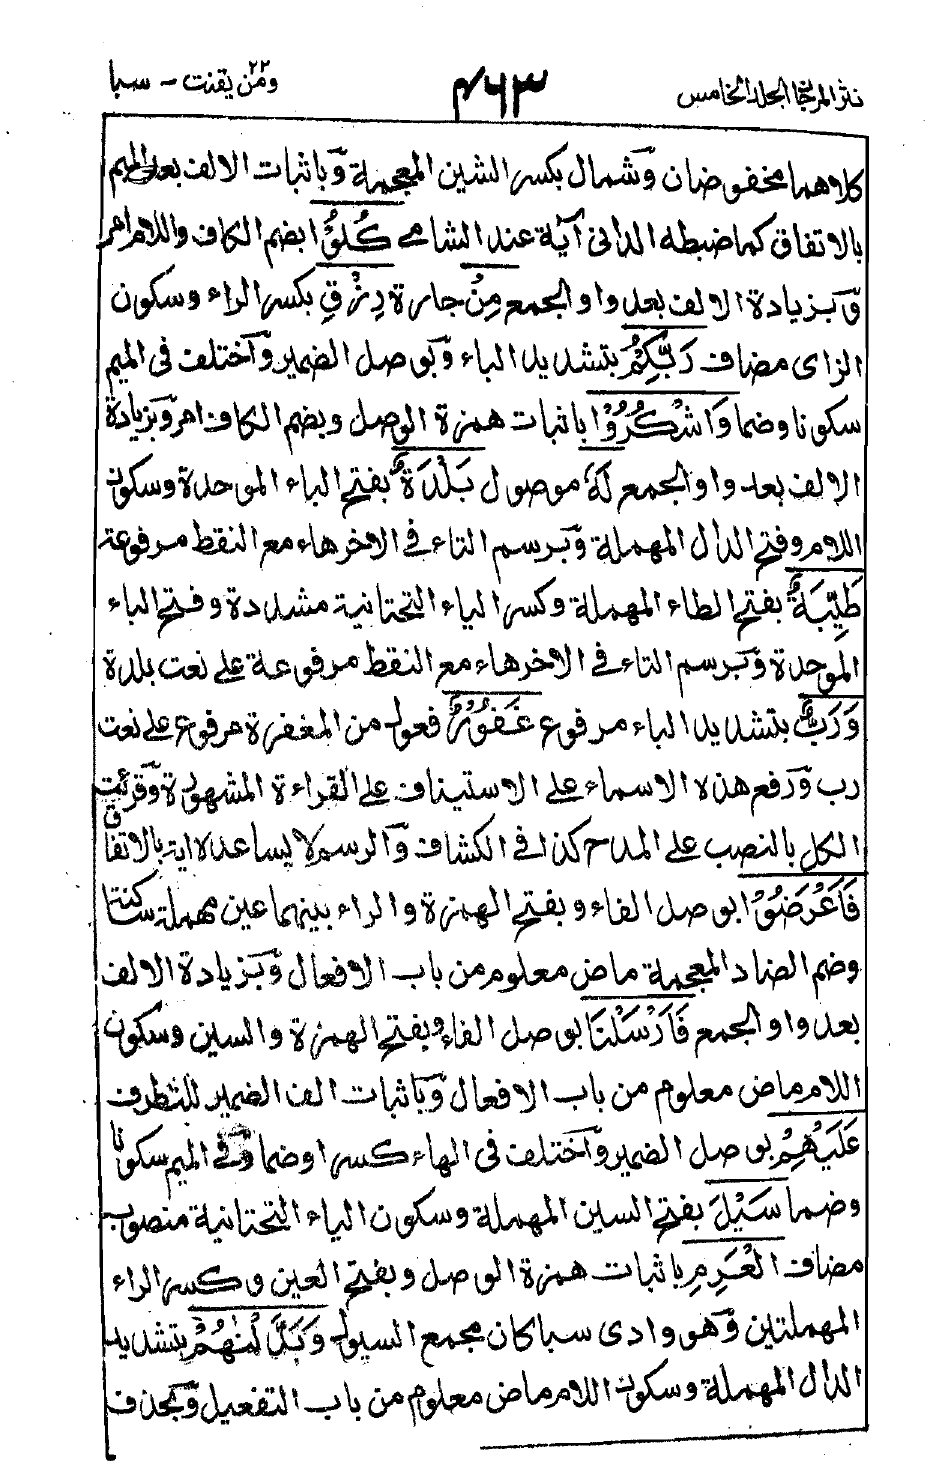 نثر المرجان الجلد الخامس
٤٦٣
ومن يقنت ٢٢ - سبا
كلاهما مخفوضان وشمال بكسر الشين المعجمة وباثبات الالف بعد الميم
بالاتفاق كما ضبطه الدانى آية عند الشامى كُلُوْا بضم الكاف واللام امر
ق وبزيادة الالف بعد واو الجمع مِنْ جارة رِزْقِ بكسر الراء وسكون
الزاى مضاف رَبِّكُمْ بتشديد الباء وبوصل الضمير واختلف فى الميم
سكونا وضما وَاشْكُرُوْا باثبات همزة الوصل وبضم الكاف امر وبزيادة
الالف بعد واو الجمع لَهٗ موصول بَلْدَةٌ بفتح الباء الموحدة وسكون
اللام وفتح الدال المهملة وبرسم التاء فى الاخر هاء مع النقط مرفوعة
طَيِّبَةٌ بفتح الطاء المهملة وكسر الياء التحتانية مشددة وفتح الباء
الموحدة وبرسم التاء فى الاخر هاء مع النقط مرفوعة على نعت بلدة
وَرَبٌّ بتشديد الباء مرفوع غَفُوْرٌ فعول من المغفرة مرفوع على نعت
رب ورفع هذه الاسماء على الاستيناف على القراءة المشهورة وقرئت
الكل بالنصب على المدح كذا فى الكشاف والرسم لا يساعده اية بالاتفاق
فَاَعْرَضُوْا بوصل الفاء وبفتح الهمزة والراء بينهما عين مهملة ساكنة
وضم الضاد المعجمة ماض معلوم من باب الافعال وبزيادة الالف
بعد واو الجمع فَاَرْسَلْنَا بوصل الفاء وبفتح الهمزة والسين وسكون
اللام ماض معلوم من باب الافعال وباثبات الف الضمير للتطرف
عَلَيْهِمْ بوصل الضمير واختلف فى الهاء كسرا وضما وفى الميم سكونا
وضما سَيْلَ بفتح السين المهملة وسكون الياء التحتانية منصوب
مضاف الْعَرِمِ باثبات همزة الوصل وبفتح العين وكسر الراء
المهملتين وهو وادى سبا كان مجمع السيول وَبَدَّلْنٰهُمْ بتشديد
الدال المهملة وسكون اللام ماض معلوم من باب التفعيل وبحذف